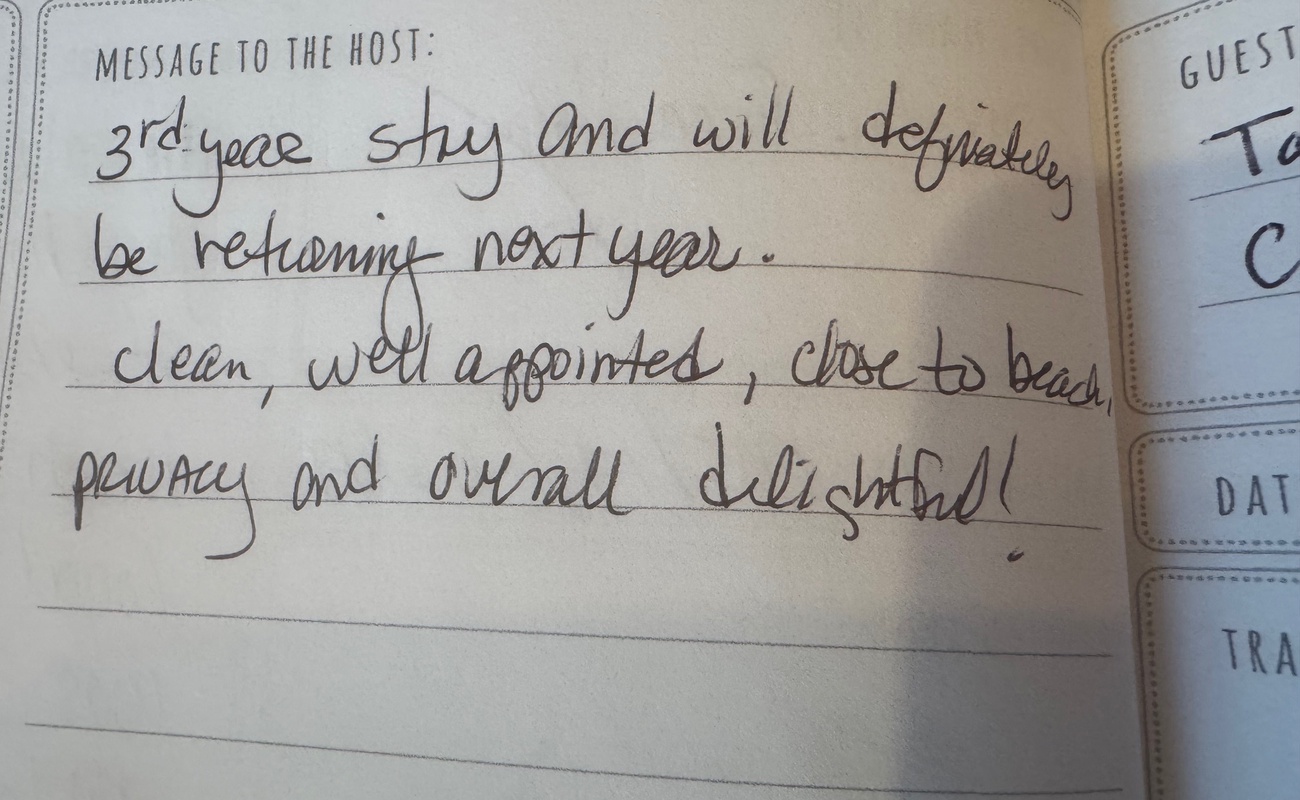 MESSAGE TO THE HOST:
3rd year stay and will definately
be returning next year.
clean, well appointed, close to beach,
privacy and overall delightful!
GUEST
To
C
DAT
TRA